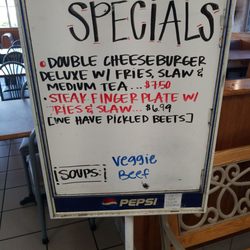 SPECIALS
• DOUBLE CHEESEBURGER
DELUXE W/ FRIES, SLAW &
MEDIUM TEA... $7.50
• STEAK FINGER PLATE W/
FRIES & SLAW... $6.99
[WE HAVE PICKLED BEETS]
Veggie
SOUPS: Beef
PEPSI